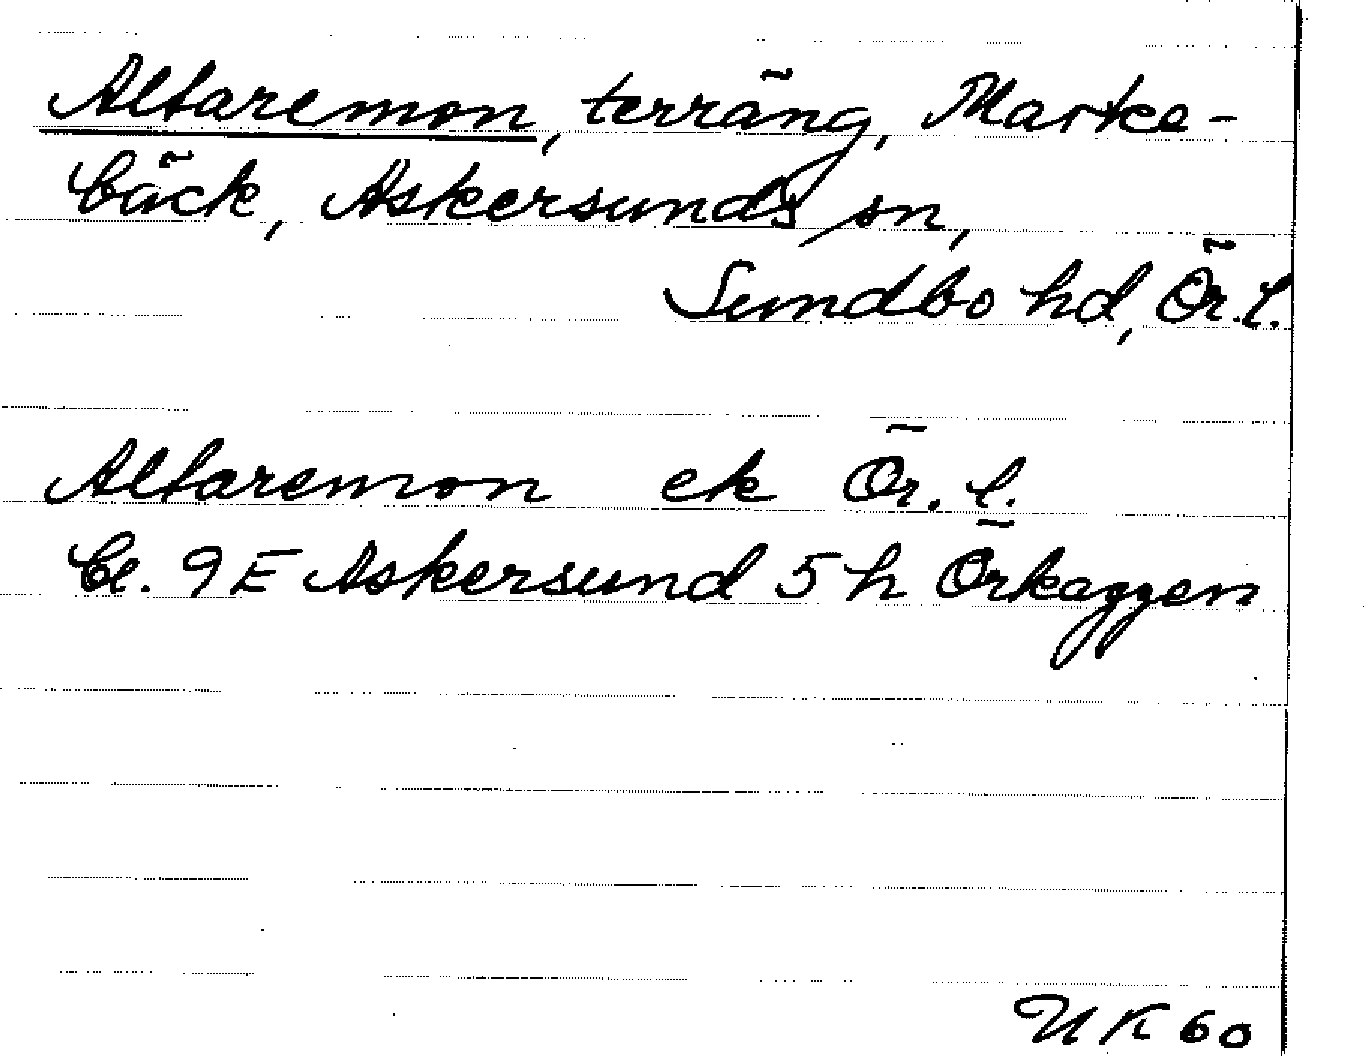 Altaremon, terräng, Marke-
bäck, Askersunds sn,
Sundbo hd, Ör. l.
Altaremon ek Ör. l.
Bl. 9 E Askersund 5 h Örkaggen
UK 60